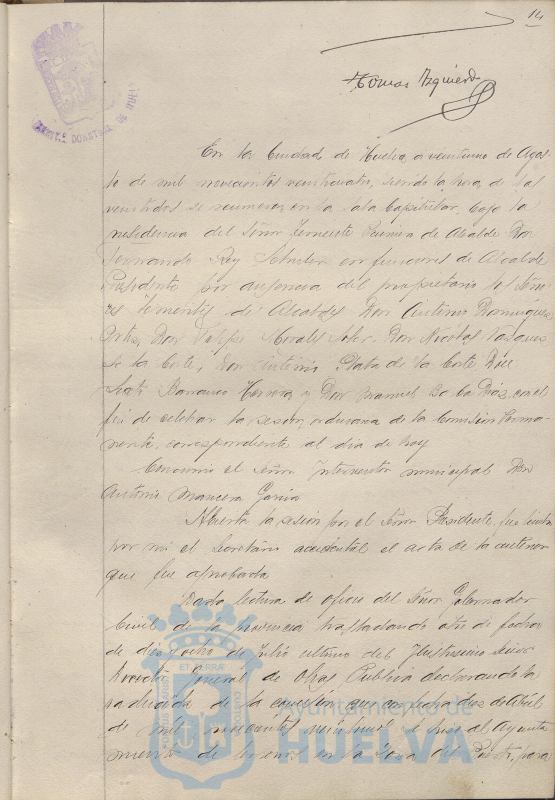 14
Tomas Izquierdo
En la Ciudad de Huelva, a veintiuno de Agos
to de mil novecientos veinticuatro, siendo la hora de las
veintidos se reunieron en la Sala Capitular, bajo la
presidencia del Señor Teniente Primero de Alcalde Don
Fernando Rey en funciones de Alcalde
Presidente por ausencia del propietario los Seño
res Tenientes de Alcaldes Don Antonio Dominguez
Ortiz, Don Felipe Morales Don Nicolas Vazquez
de la Corte, Don Antonio Plata de la Corte, Don
José Barranco Herrera y Don Manuel Barba Diaz, con el
fin de celebrar la sesión ordinaria de la Comisión Perma-
nente, correspondiente al dia de hoy
Concurrio el Señor Interventor municipal Don
Antonio Mancera Garcia
Abierta la sesión por el Señor Presidente, fue leida
por mi el Secretario accidental el acta de la anterior
que fue aprobada
Dada lectura de oficio del Señor Gobernador
Civil de la Provincia trasladando otro de fecha
de diez y ocho de Julio ultimo del Ilustrisimo Señor
Director General de Obras Publica declarando la
caducidad de la concesión que con fecha diez de Abril
de mil novecientos se hizo al Ayunta
miento de en la Zona del Puerto, para
Ayuntamiento de
HUELVA